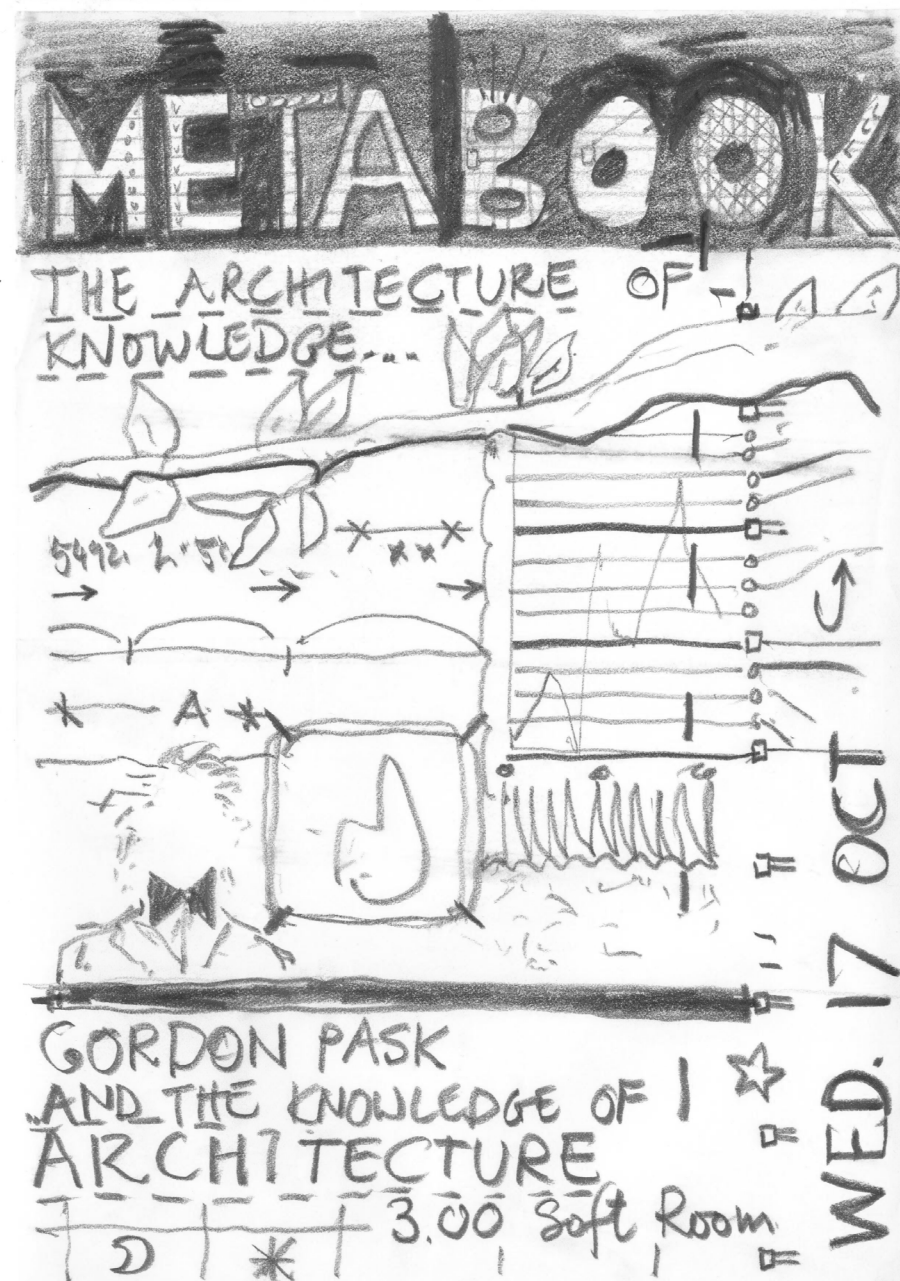 METABOOK
THE ARCHITECTURE OF
KNOWLEDGE....
A
GORDON PASK
AND THE KNOWLEDGE OF
ARCHITECTURE
3.00 Soft Room
WED. 17 OCT